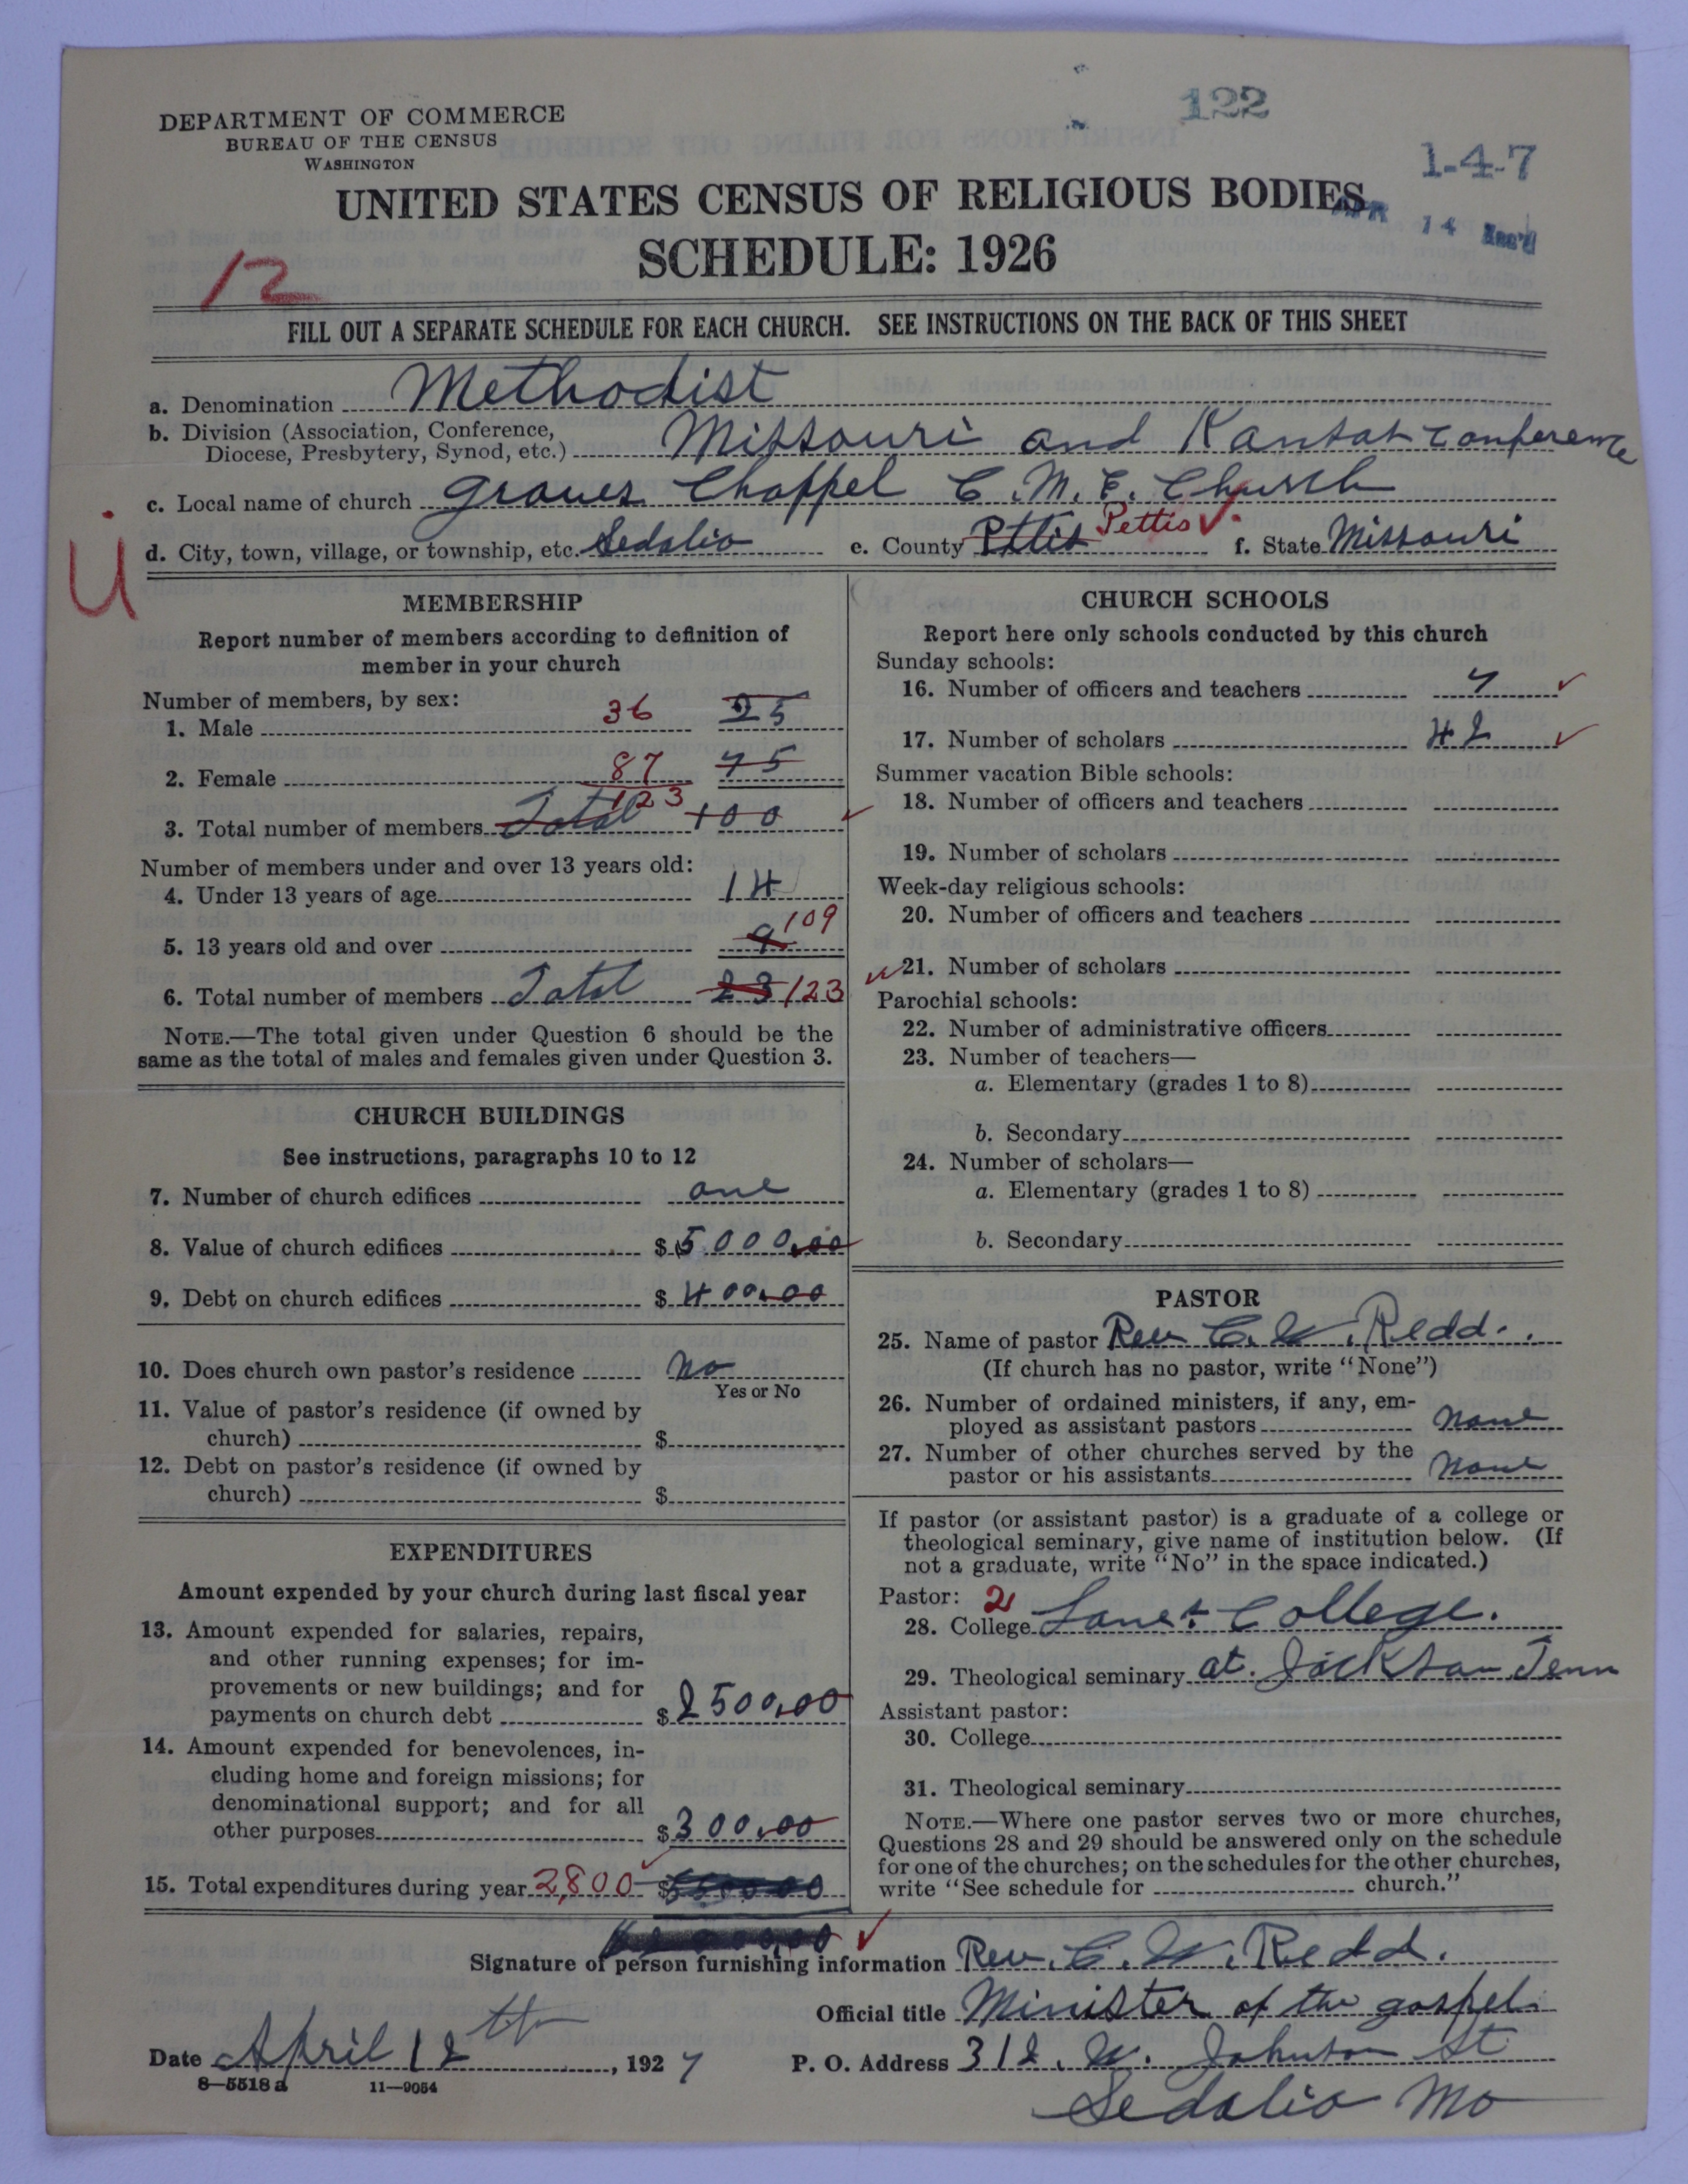 122
DEPARTMENT OF COMMERCE
BUREAU OF THE CENSUS
WASHINGTON
1-4-7
UNITED STATES CENSUS OF RELIGIOUS BODIES
APR 14 Rec'd
SCHEDULE: 1926
12
FILL OUT A SEPARATE SCHEDULE FOR EACH CHURCH. SEE INSTRUCTIONS ON THE BACK OF THIS SHEET
a. Denomination Methodist
b. Division (Association, Conference,
Diocese, Presbytery, Synod, etc.) Missouri and Kansas Conference
c. Local name of church Graves Chappel C.M.E. Church
d. City, town, village, or township, etc. Sedalia e. County Pttis Pettis f. State Missouri
U
MEMBERSHIP
Report number of members according to definition of
member in your church
Number of members, by sex:
1. Male 36 25
2. Female 87 75
123
3. Total number of members Total 100
Number of members under and over 13 years old:
4. Under 13 years of age 14
5. 13 years old and over 9 109
6. Total number of members Total 23 123
NOTE.—The total given under Question 6 should be the
same as the total of males and females given under Question 3.
CHURCH BUILDINGS
See instructions, paragraphs 10 to 12
7. Number of church edifices one
8. Value of church edifices $ 5000.00
9. Debt on church edifices $ 400.00
10. Does church own pastor's residence no
Yes or No
11. Value of pastor's residence (if owned by
church) $
12. Debt on pastor's residence (if owned by
church) $
EXPENDITURES
Amount expended by your church during last fiscal year
13. Amount expended for salaries, repairs,
and other running expenses; for im-
provements or new buildings; and for
payments on church debt $ 2500.00
14. Amount expended for benevolences, in-
cluding home and foreign missions; for
denominational support; and for all
other purposes $ 300.00
15. Total expenditures during year 2,800 $
CHURCH SCHOOLS
Report here only schools conducted by this church
Sunday schools:
16. Number of officers and teachers 7
17. Number of scholars 42
Summer vacation Bible schools:
18. Number of officers and teachers
19. Number of scholars
Week-day religious schools:
20. Number of officers and teachers
21. Number of scholars
Parochial schools:
22. Number of administrative officers
23. Number of teachers—
a. Elementary (grades 1 to 8)
b. Secondary
24. Number of scholars—
a. Elementary (grades 1 to 8)
b. Secondary
PASTOR
25. Name of pastor Rev C. W. Redd.
(If church has no pastor, write "None")
26. Number of ordained ministers, if any, em-
ployed as assistant pastors none
27. Number of other churches served by the
pastor or his assistants none
If pastor (or assistant pastor) is a graduate of a college or
theological seminary, give name of institution below. (If
not a graduate, write "No" in the space indicated.)
Pastor: 2
28. College Lane College.
29. Theological seminary at. Jackson Tenn
Assistant pastor:
30. College
31. Theological seminary
NOTE.—Where one pastor serves two or more churches,
Questions 28 and 29 should be answered only on the schedule
for one of the churches; on the schedules for the other churches,
write "See schedule for church."
Signature of person furnishing information Rev. C. W. Redd.
Official title Minister of the gospel.
Date April 12th, 1927 P. O. Address 312. W. Johnson St
8—5518a 11—9054
Sedalia Mo